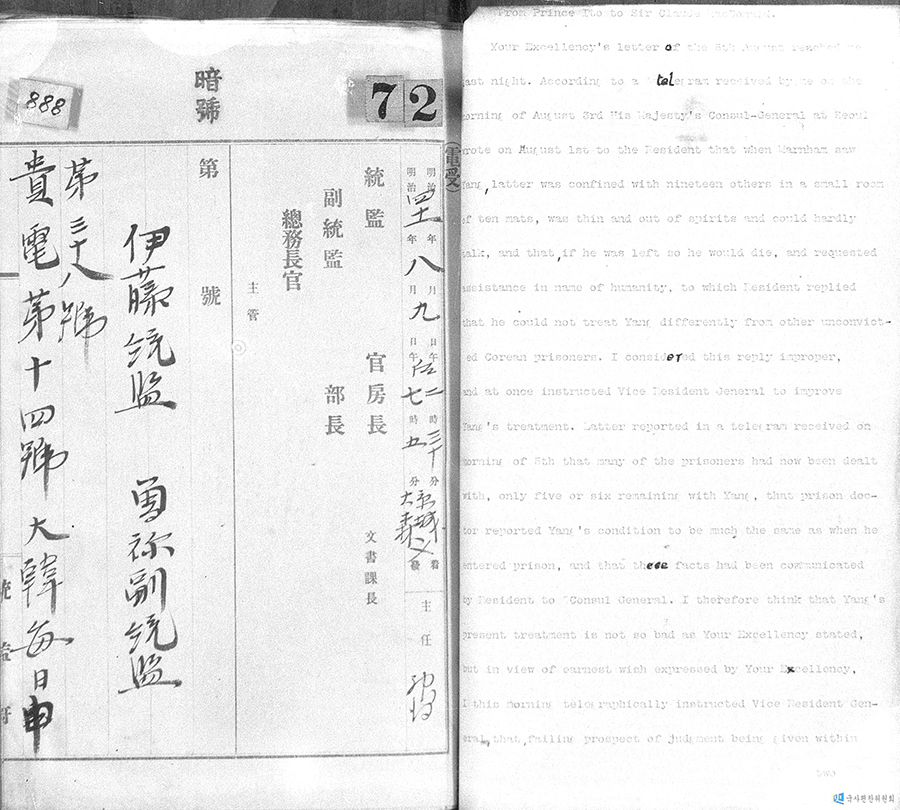 888
暗號
72
(電受)
明治四十一年八月九日午后二時三十分京城
明治年月日午七時五分大森發
主任
統監 官房長 文書課長
副統監 部長
總務長官
主管
第 號
伊藤統監 曾祢副統監
第三十八號
貴電第十四號大韓每日申
From Prince Ito to Sir Claude MacDonald.
Your Excellency's letter of the 8th August reached me
last night. According to a telegram received by me on the
morning of August 3rd His Majesty's Consul-General at Seoul
wrote on August 1st to the Resident that when Marnham saw
Yang, latter was confined with nineteen others in a small room
of ten mats, was thin and out of spirits and could hardly
talk, and that, if he was left so he would die, and requested
assistance in name of humanity, to which Resident replied
that he could not treat Yang differently from other unconvict-
ed Corean prisoners. I considered this reply improper,
and at once instructed Vice Resident General to improve
Yang's treatment. Latter reported in a telegram received on
morning of 8th that many of the prisoners had now been dealt
with, only five or six remaining with Yang, that prison doc-
tor reported Yang's condition to be much the same as when he
entered prison, and that these facts had been communicated
by Resident to Consul General. I therefore think that Yang's
present treatment is not so bad as Your Excellency stated,
but in view of earnest wish expressed by Your Excellency,
I this morning telegraphically instructed Vice Resident Gen-
eral, that, failing prospect of judgment being given within
two
국사편찬위원회